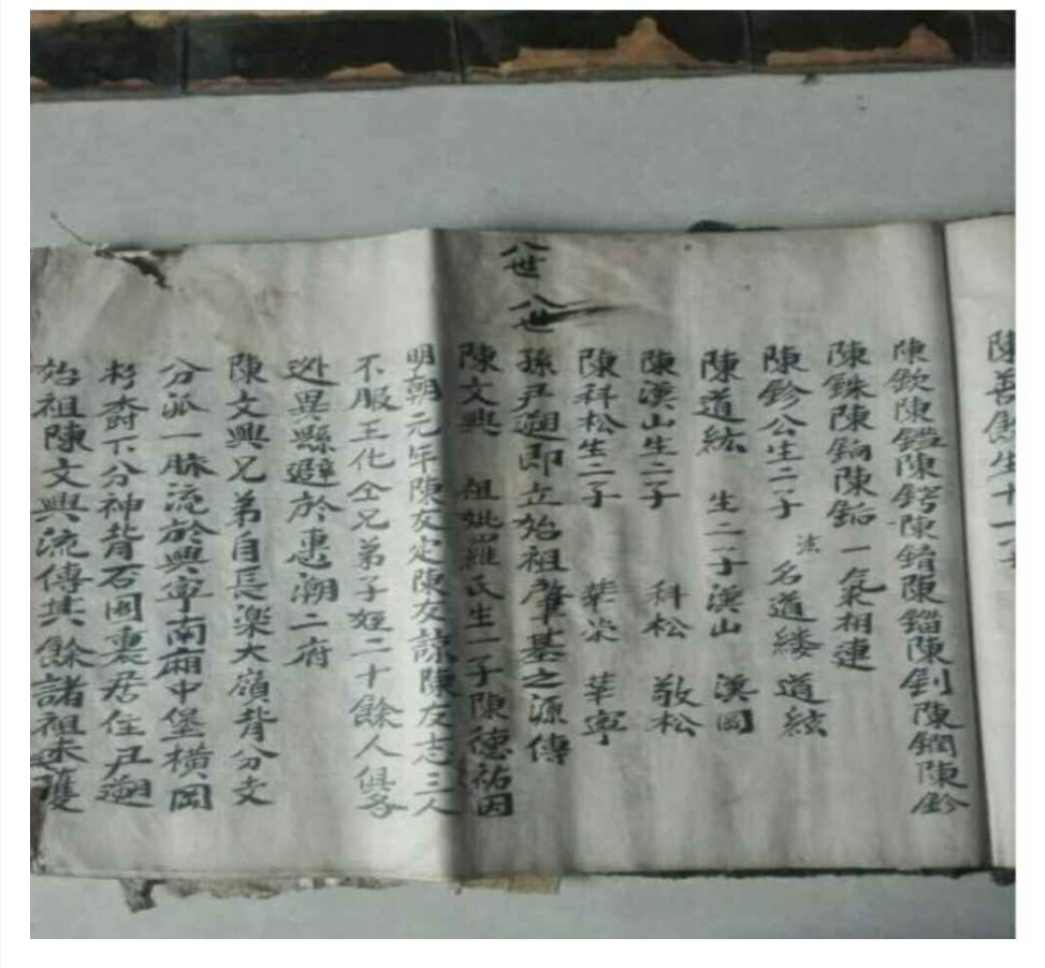 陳善餘生十一子
陳欽陳鐙陳鍔陳錥陳錙陳釗陳鐗陳鈐
陳銖陳銄陳銗一氣相連
陳鈐公生二子 法名道縷 道絃
陳道紘 生二子漢山 漢岡
陳漢山生二子 科松 敬松
陳科松生二子 華榮 華寧
八世 八世
孫戶遡即立始祖肇基之源傳
陳文興 祖妣羅氏生一子陳德祐因
明朝元年陳友定陳友諒陳友志三人
不服王化仝兄弟子姪二十餘人俱各
迯異縣避於惠潮二府
陳文興兄弟自長樂大嶺背分支
分派一脉流於興寧南廂中堡橫岡
杉樹下分神背石圍裏居住戶遡
始祖陳文興流傳其餘諸祖未獲